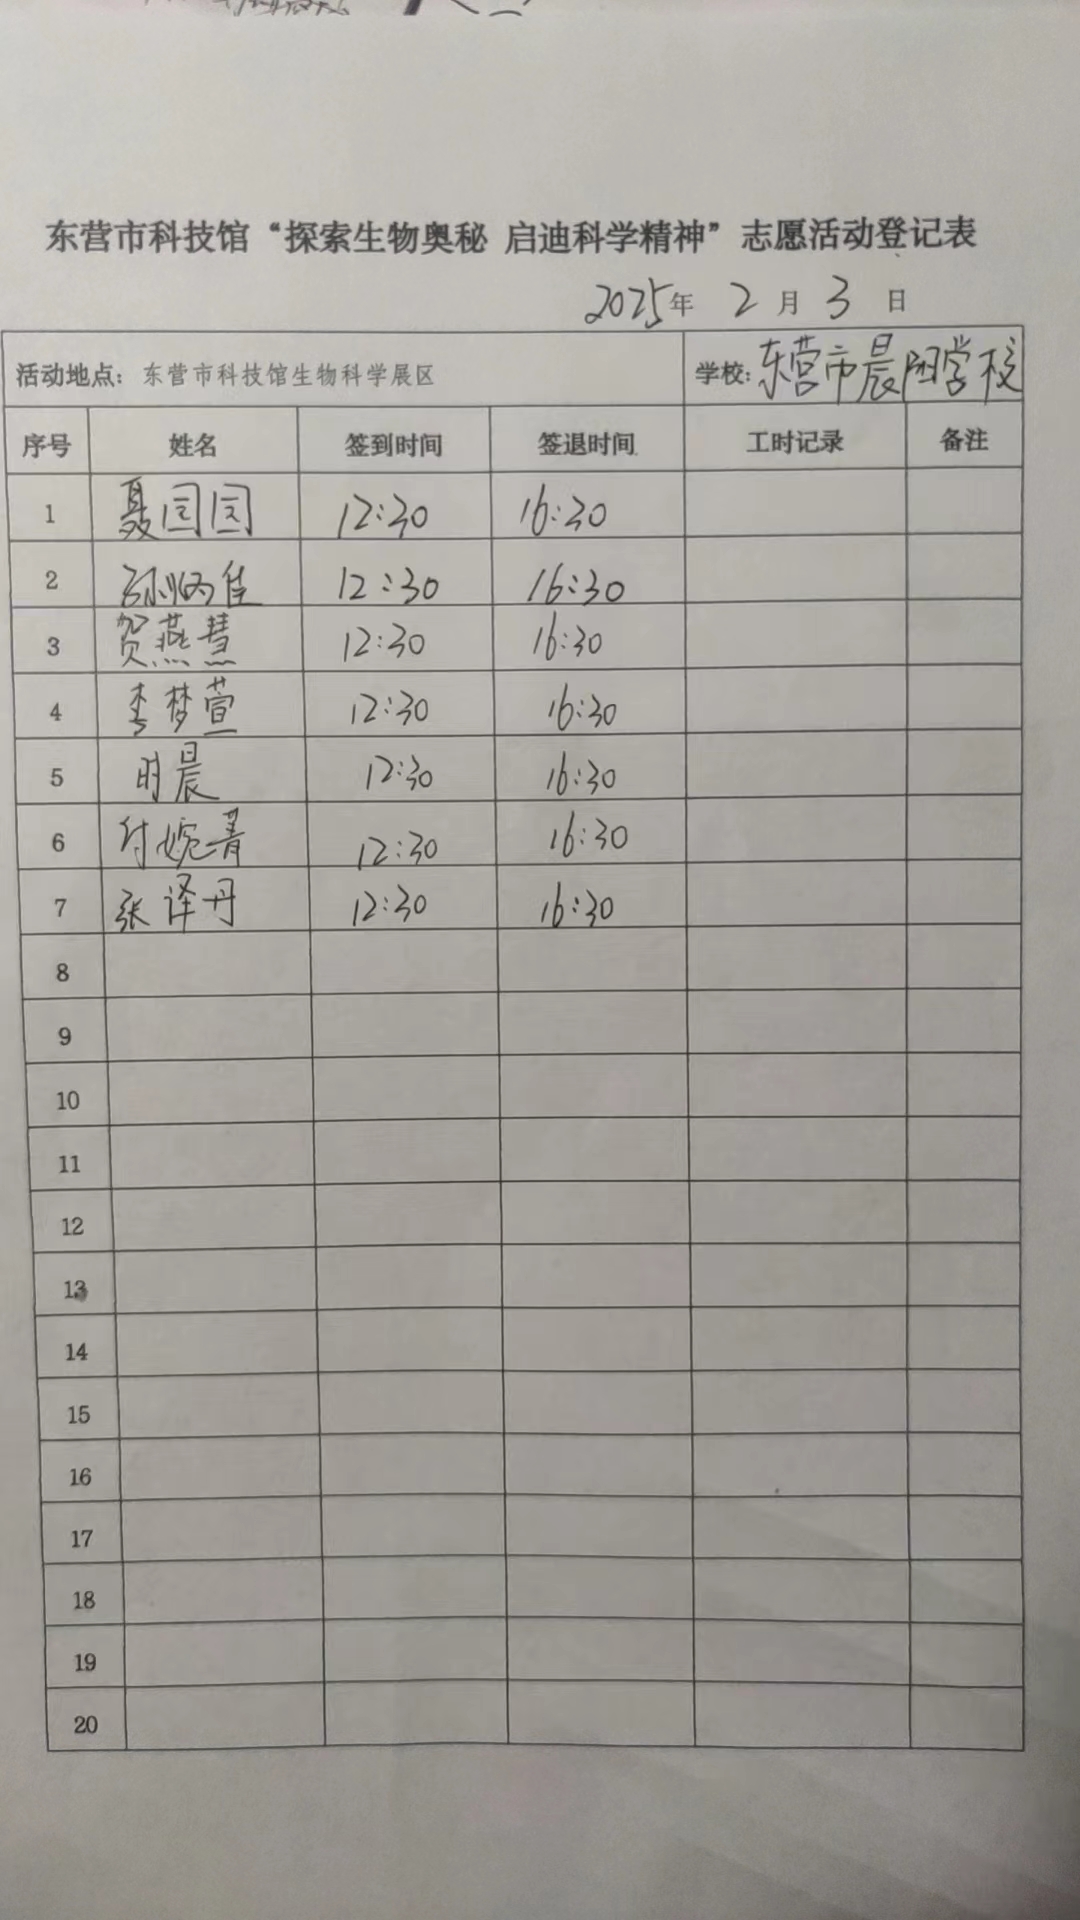 东营市科技馆“探索生物奥秘 启迪科学精神”志愿活动登记表
2025年 2月 3日
活动地点：东营市科技馆生物科学展区 学校：东营市晨阳学校
序号 姓名 签到时间 签退时间 工时记录 备注
1 聂园园 12:30 16:30
2 孙炳佳 12:30 16:30
3 贺燕慧 12:30 16:30
4 李梦萱 12:30 16:30
5 时晨 12:30 16:30
6 付婉菁 12:30 16:30
7 张译丹 12:30 16:30
8
9
10
11
12
13
14
15
16
17
18
19
20